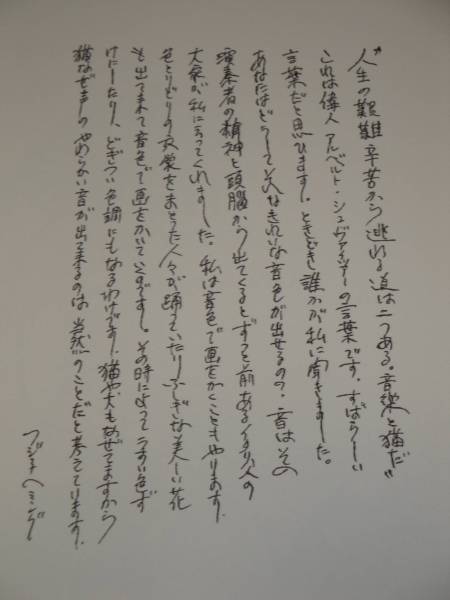 "人生の艱難辛苦から逃れる道は二つある。音楽と猫だ"
これは偉人アルベルト・シュヴァイツァーの言葉です。すばらしい
言葉だと思ひます。ときどき誰かが私に聞きました。
あなたはどうしてそんなきれいな音色が出せるの?音はその
演奏者の精神と頭脳から出てくるとずっと前ある人の
大家が私に言ってくれました。私は音色で画をかくこともやります。
色とりどりの衣裳をまとった人々が踊っていたりふしぎな美しい花
も出て来て音色で画をかいていくのです。その時によってうすい色ず
けにしたり、どぎつい色調にもなるわけです。猫や犬もなぜてますから
猫なぜ声のやわらかい音が出て来るのは当然のことだと考えています。
フジ子ヘミング